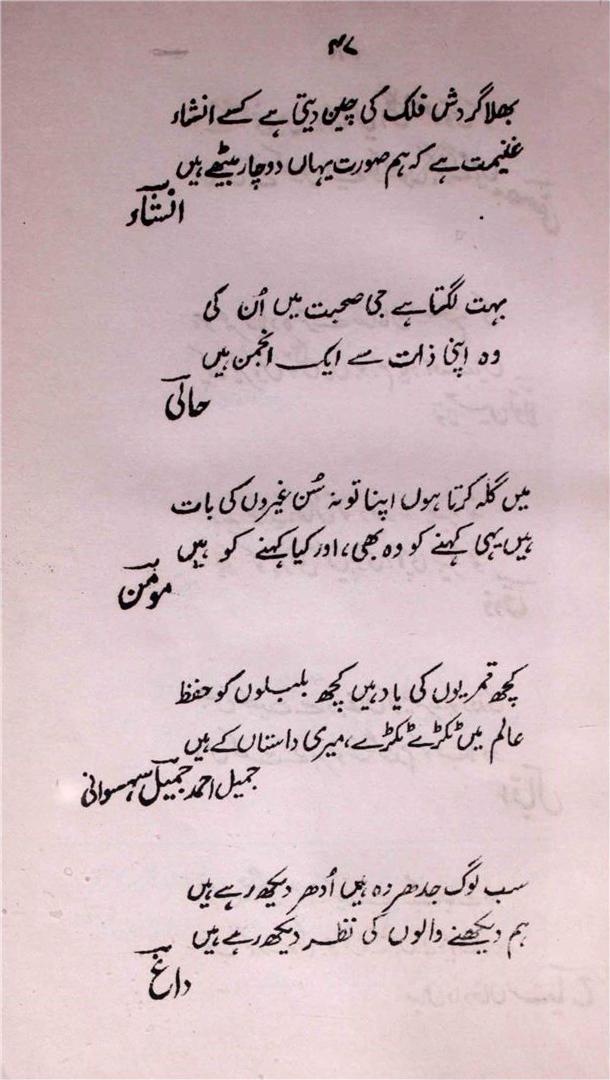 ۴۷
بھلا گردش فلک کی چین دیتی ہے کسے انشاء
غنیمت ہے کہ ہم صورت یہاں دوچار بیٹھے ہیں
انشاء
بہت لگتا ہے جی صحبت میں اُن کی
وہ اپنی ذات سے ایک انجمن ہیں
حالی
میں گلہ کرتا ہوں اپنا تو نہ سُن غیروں کی بات
ہیں یہی کہنے کو وہ بھی، اور کیا کہنے کو ہیں
مومن
کچھ قمریوں کی یاد ہیں کچھ بلبلوں کو حفظ
عالم میں ٹکڑے ٹکڑے، میری داستاں کے ہیں
جمیل احمد جمیل سہسوانی
سب لوگ جدھر وہ ہیں اُدھر دیکھ رہے ہیں
ہم دیکھنے والوں کی نظر دیکھ رہے ہیں
داغ